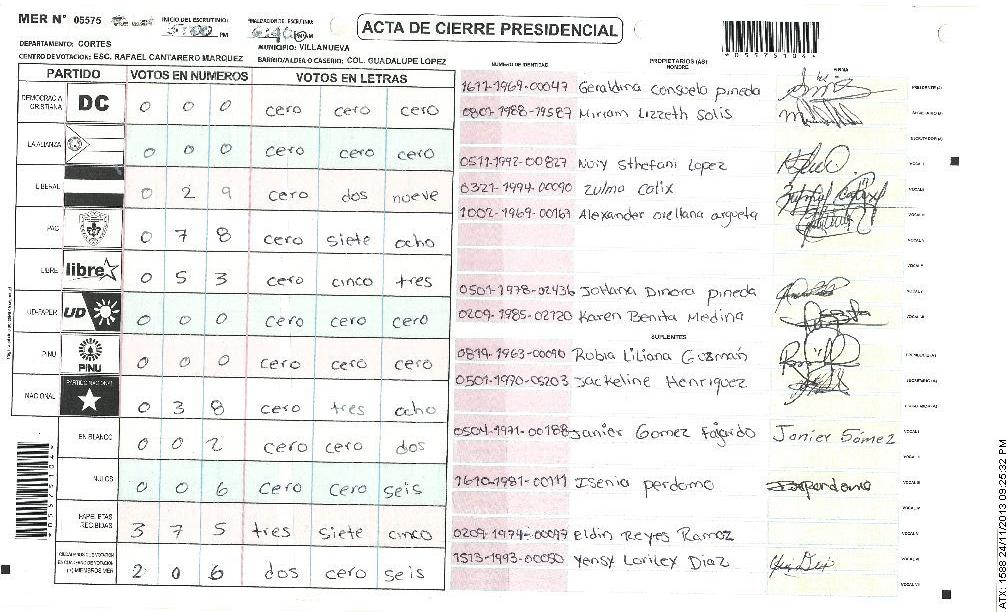 MER N° 05575
INICIO DEL ESCRUTINIO:
5:00 PM
FINALIZACION DEL ESCRUTINIO:
6:40
ACTA DE CIERRE PRESIDENCIAL
DEPARTAMENTO: CORTES
MUNICIPIO: VILLANUEVA
CENTRO DE VOTACION: ESC. RAFAEL CANTARERO MARQUEZ
BARRIO/ALDEA O CASERIO: COL. GUADALUPE LOPEZ
PARTIDO VOTOS EN NUMEROS VOTOS EN LETRAS
DEMOCRACIA CRISTIANA DC 0 0 0 cero cero cero
LA ALIANZA 0 0 0 cero cero cero
LIBERAL 0 2 9 cero dos nueve
PAC 0 7 8 cero siete ocho
LIBRE libre 0 5 3 cero cinco tres
UD-FAPER UD 0 0 0 cero cero cero
PINU PINU 0 0 0 cero cero cero
NACIONAL PARTIDO NACIONAL 0 3 8 cero tres ocho
EN BLANCO 0 0 2 cero cero dos
NULOS 0 0 6 cero cero seis
PAPELETAS RECIBIDAS 3 7 5 tres siete cinco
2 0 6 dos cero seis
NUMERO DE IDENTIDAD
PROPIETARIOS (AS)
NOMBRE
FIRMA
1611-1969-00047 Geraldina consuelo pineda
0801-1988-19587 Miriam Lizzeth Solis
0511-1992-00827 Nuiy Sthefani Lopez
0321-1994-00090 Zulma Calix
1002-1969-00167 Alexander orellana argueta
0501-1978-02436 Johana Dinora pineda
0209-1985-02720 Karen Benita Medina
SUPLENTES
0819-1963-00090 Rubia Liliana Guzmán
0501-1970-05203 Jackeline Henriquez
0504-1971-00188 Janier Gomez Fajardo Janier Gómez
1610-1981-00111 Isenia perdomo
0209-1974-00097 Eldin Reyes Ramoz
1513-1993-00050 Yensy Loriley Diaz
*05575104*
ATX: 1588 24/11/2013 09:25:32 PM